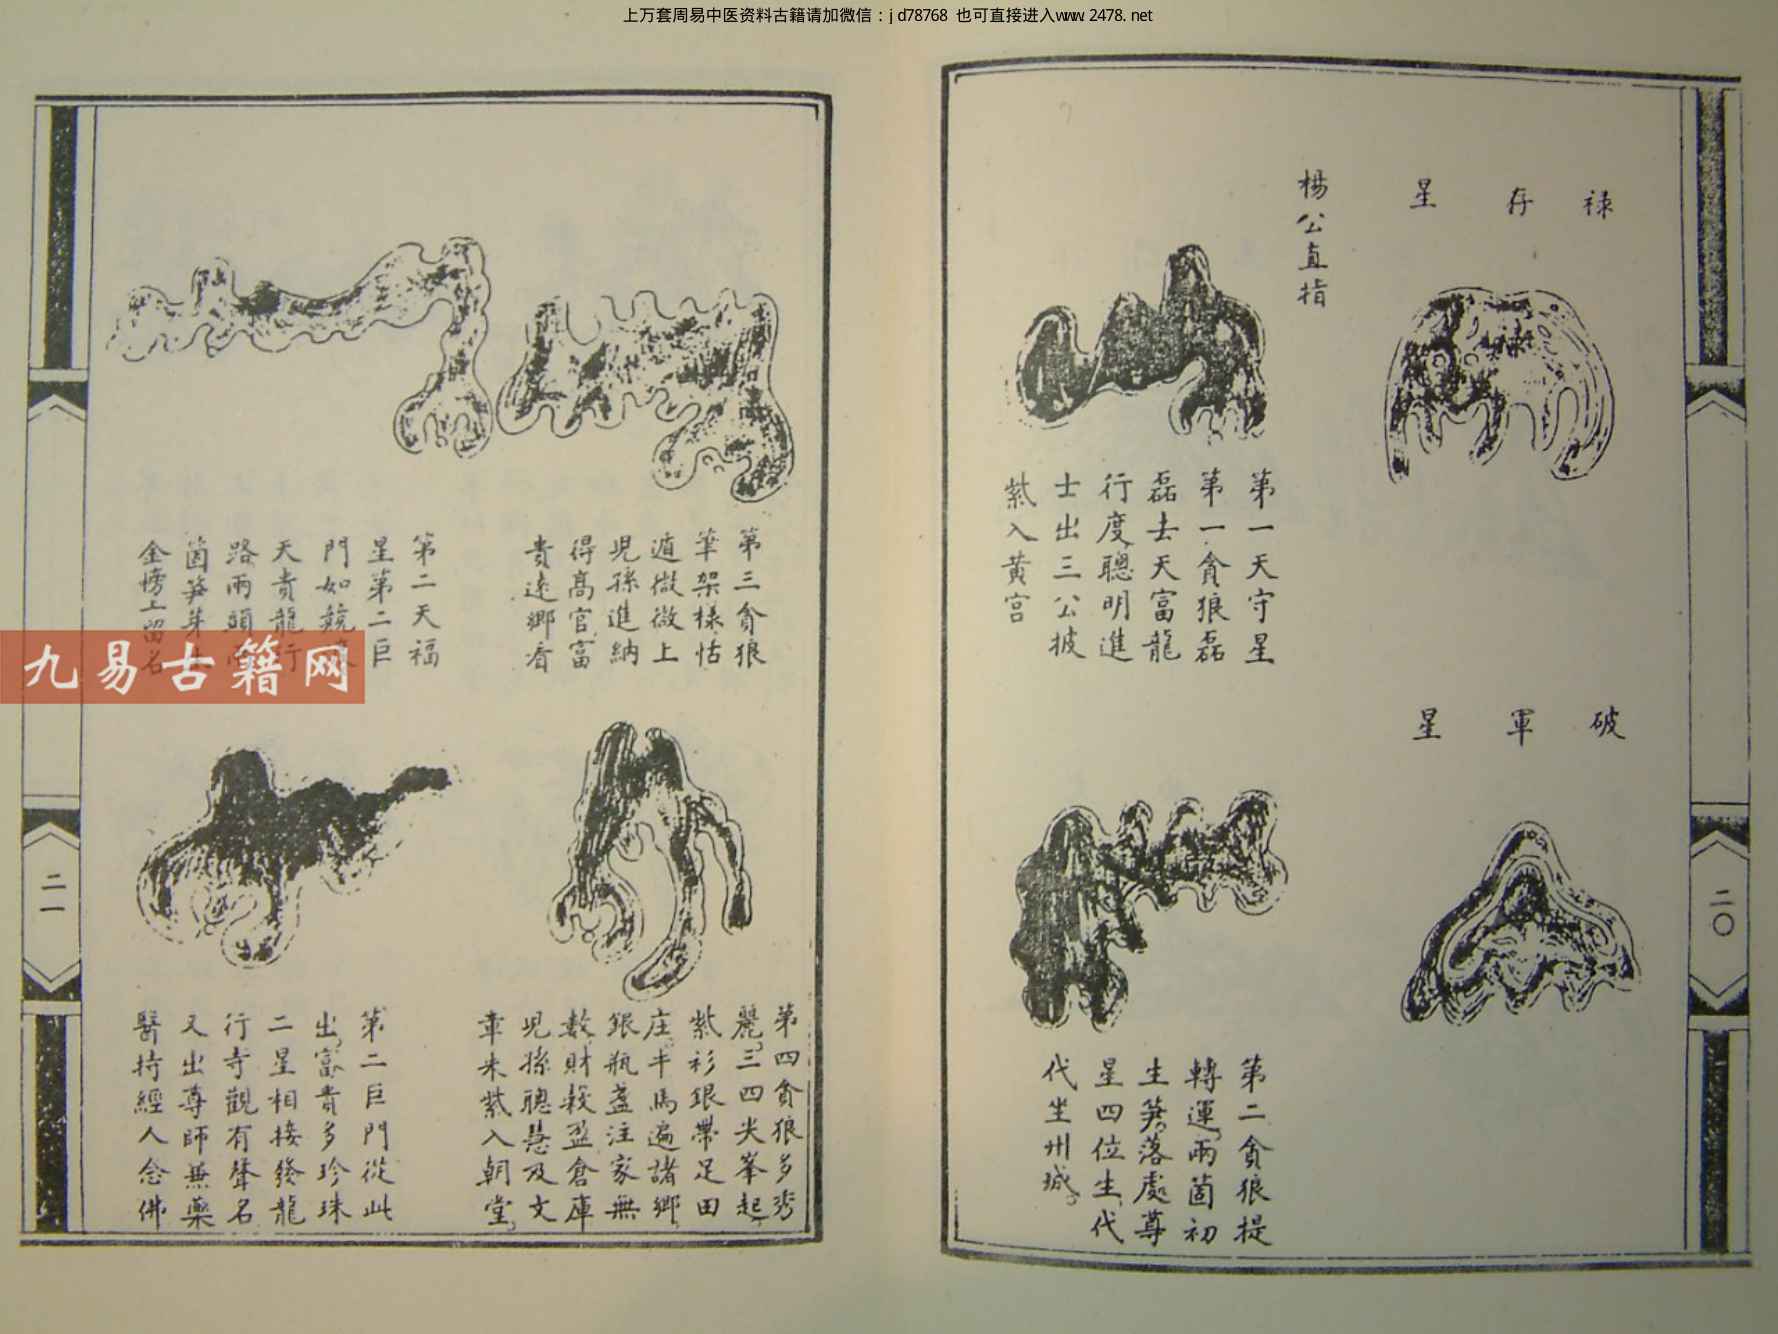 上万套周易中医资料古籍请加微信：jd78768 也可直接进入www.2478.net
祿存星
破軍星
楊公直指
第一天守星
第一貪狼磊
磊去天富龍
行度聰明進
士出三公披
紫入黄宮
第二貪狼提
轉運兩箇初
生笋落處尊
星四位生代
代坐州城
二〇
第三貪狼
筆架樣怙
遁微微上
児孫進納
得高官富
貴遠鄉看
第二天福
星第二巨
門如
天貴龍行
路兩頭
箇笋芽
金榜上留名
第四貪狼多秀
麗三四尖峯起
紫衫銀帶足田
庄牛馬遍諸鄉
銀瓶盞注家無
数財穀盈倉庫
児孫聰慧及文
章朱紫入朝堂
第二巨門從此
出富貴多珍珠
二星相接發龍
行寺觀有聲名
又出尊師無藥
醫持經人念佛
二一
九易古籍网